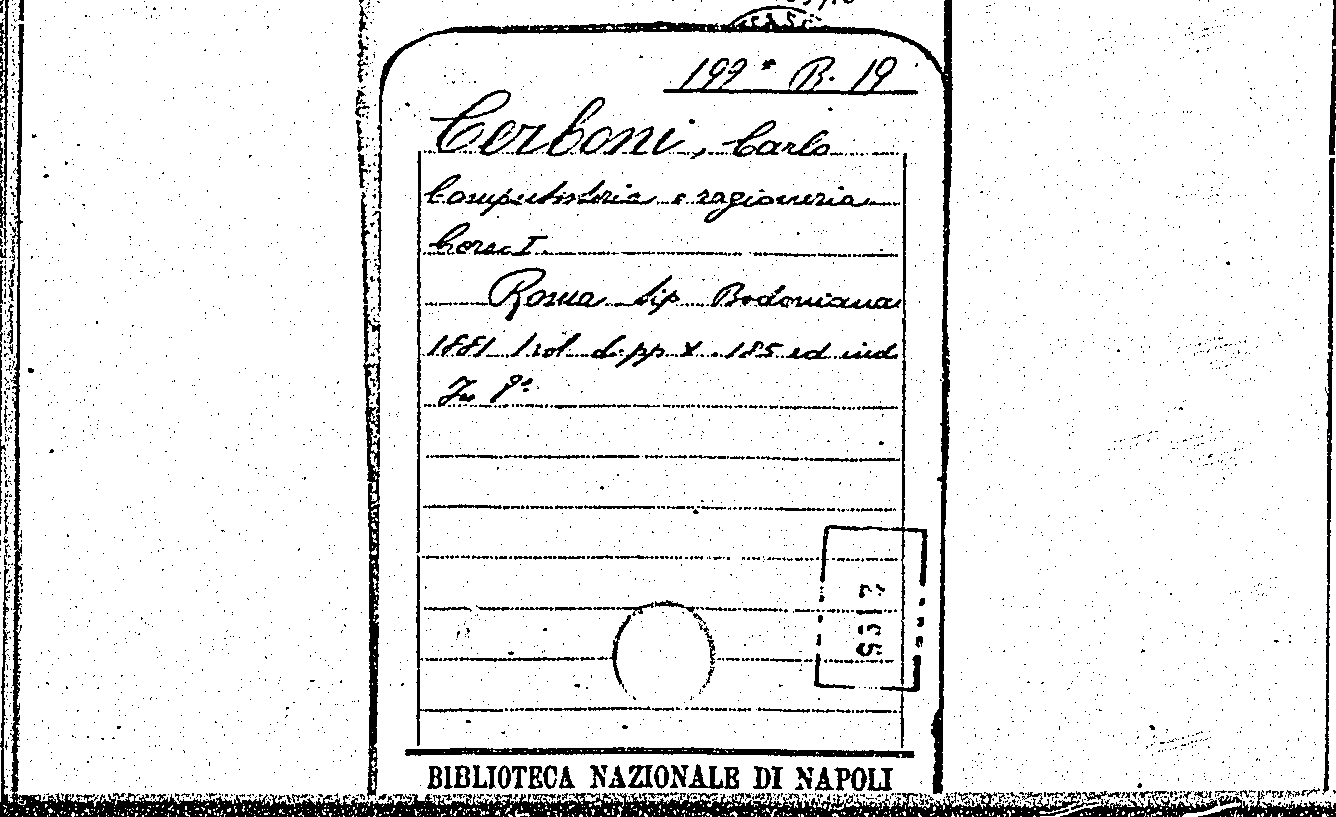 199* B. 19
Cerboni, Carlo
Computisteria e ragioneria
Corso I.
Roma tip Bodoniana
1881 1 vol. di pp X. 185 ed ind
In 8º
BIBLIOTECA NAZIONALE DI NAPOLI